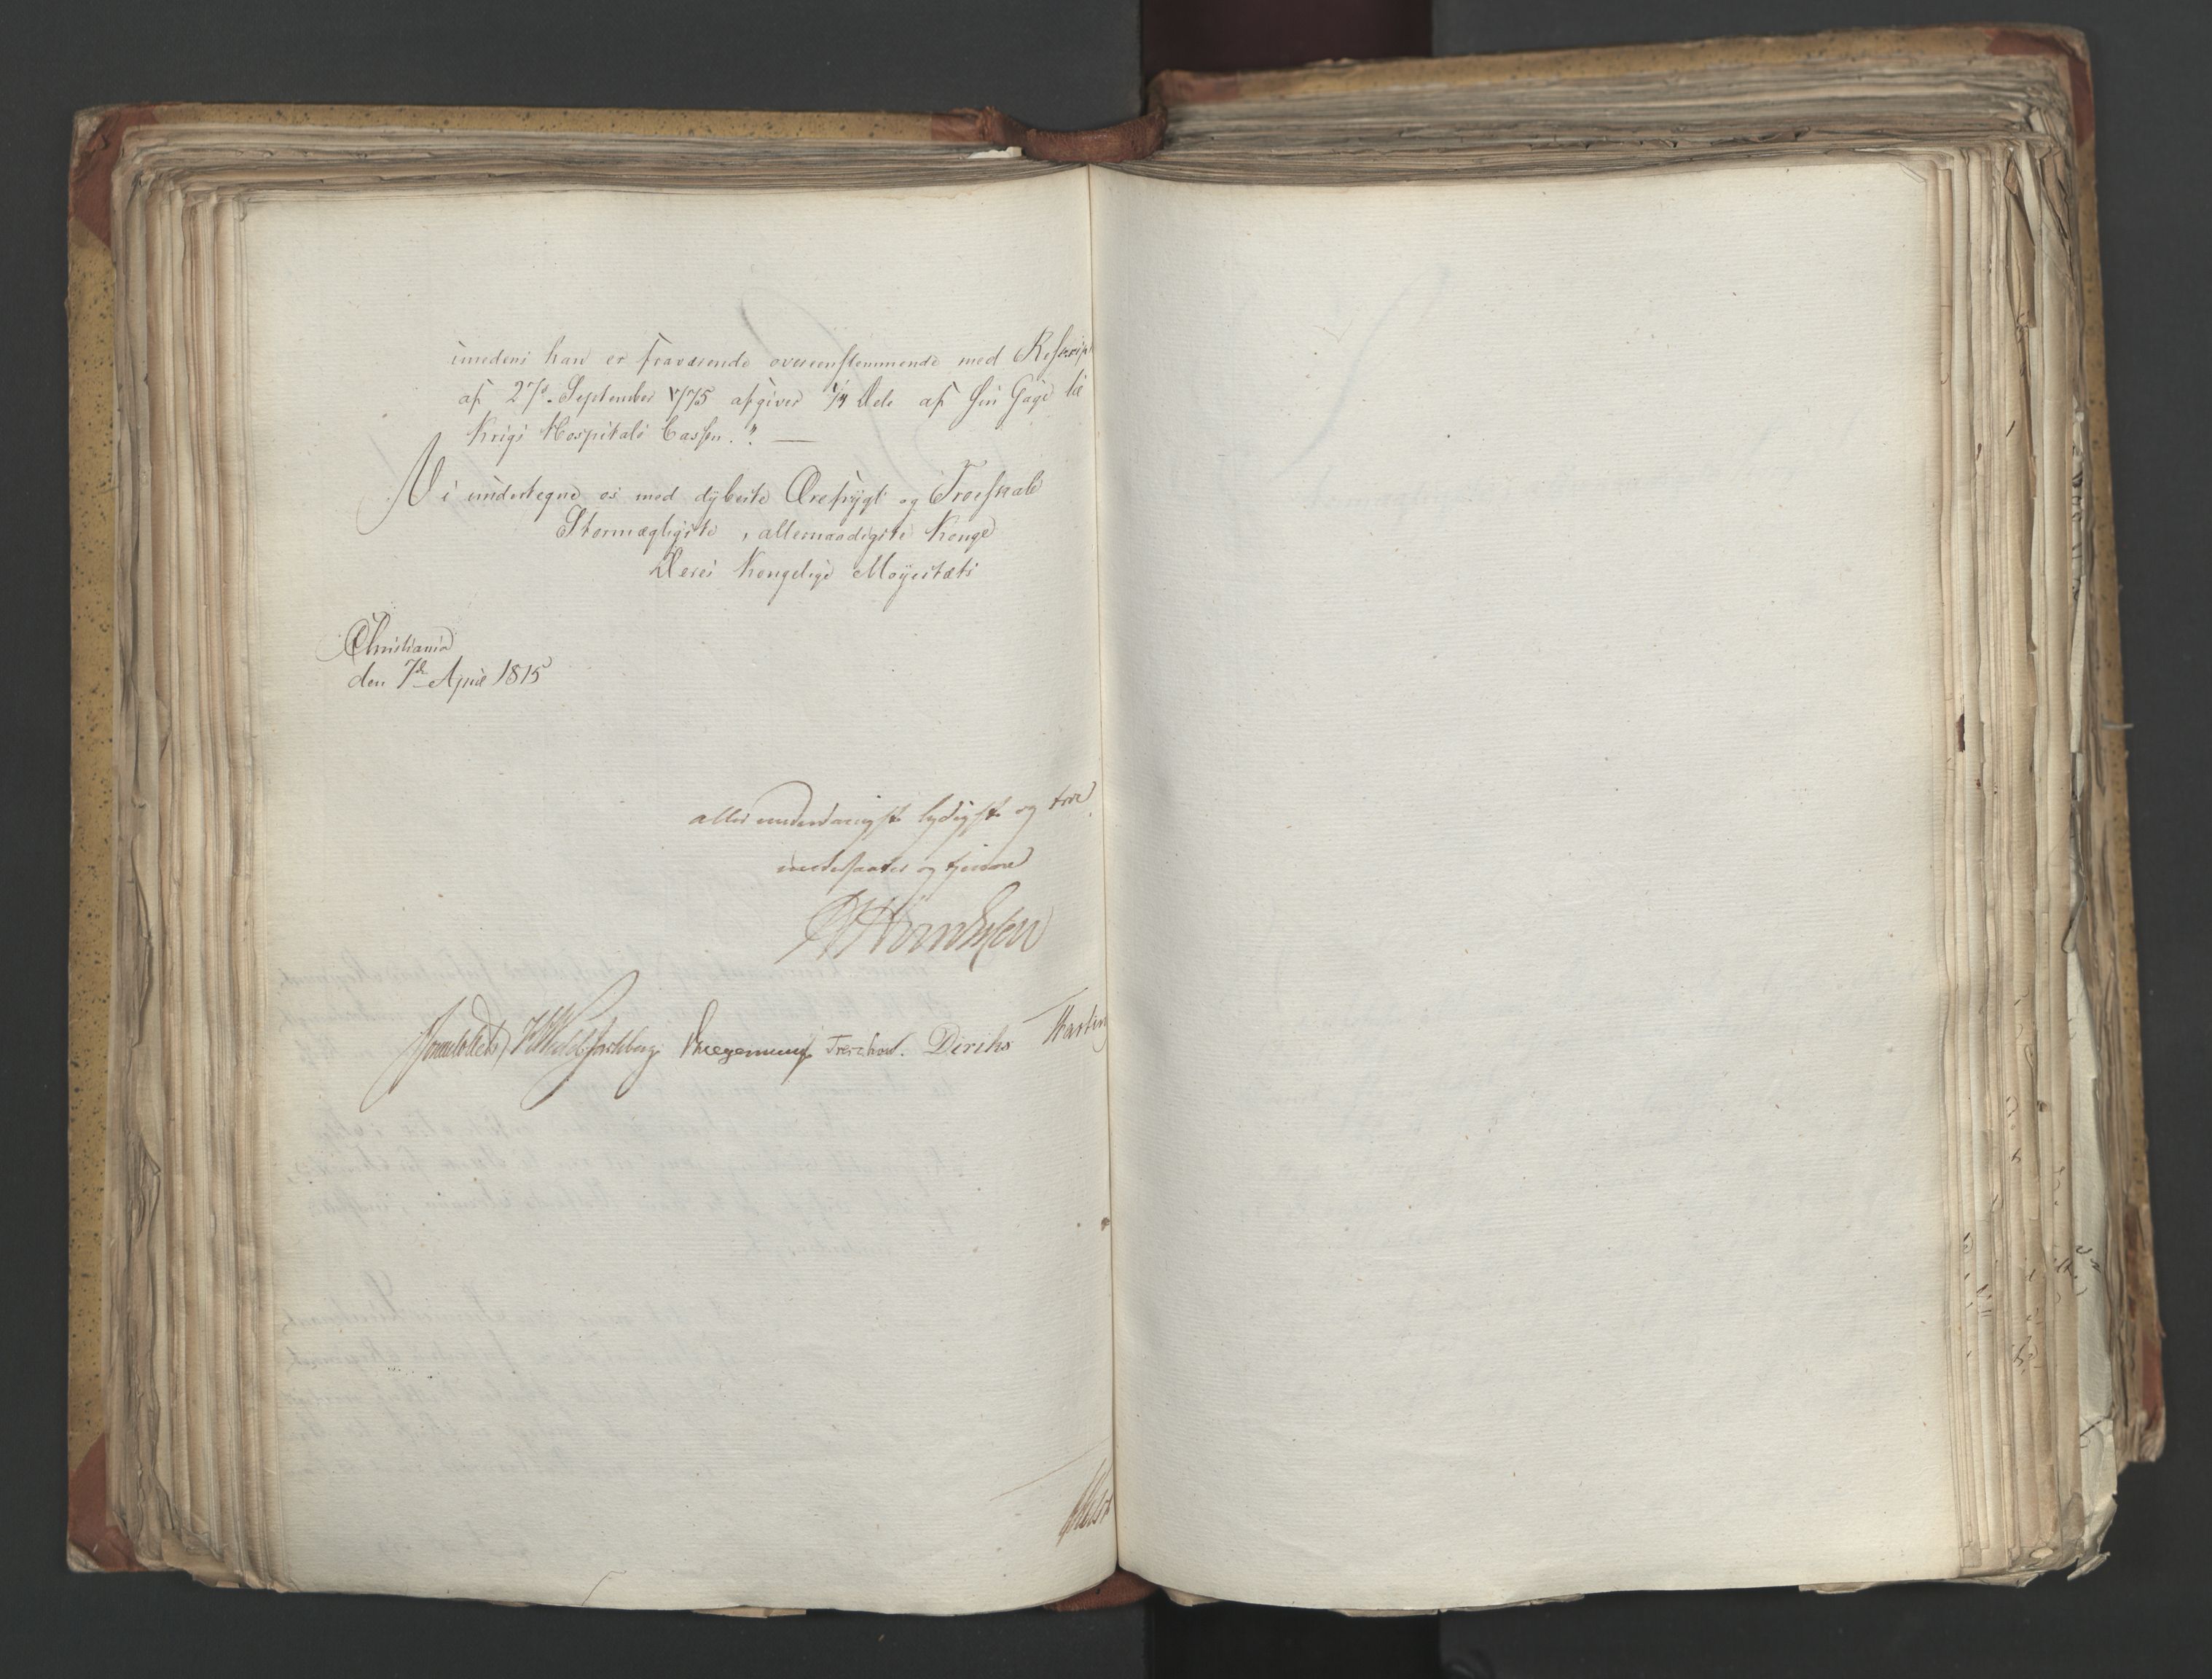 imedens han er fraværende overeensstemmende med Rescript
af 27de September 1775 afgiver 1/4 Dele af sin Gage til
Krigs Hospitals Cassen." —
Vi undertegne os med dybeste Ærefrygt og Troeskab
Stormægtigste, allernaadigste Konge
Deres Kongelige Majestæts
Christiania
den 7de April 1815
allerunderdanigste lydigste og troe
undersaatter og tjenere
Sommerhielm Wedel Jarlsberg Krogemunch Treschow. Diriks Hasting